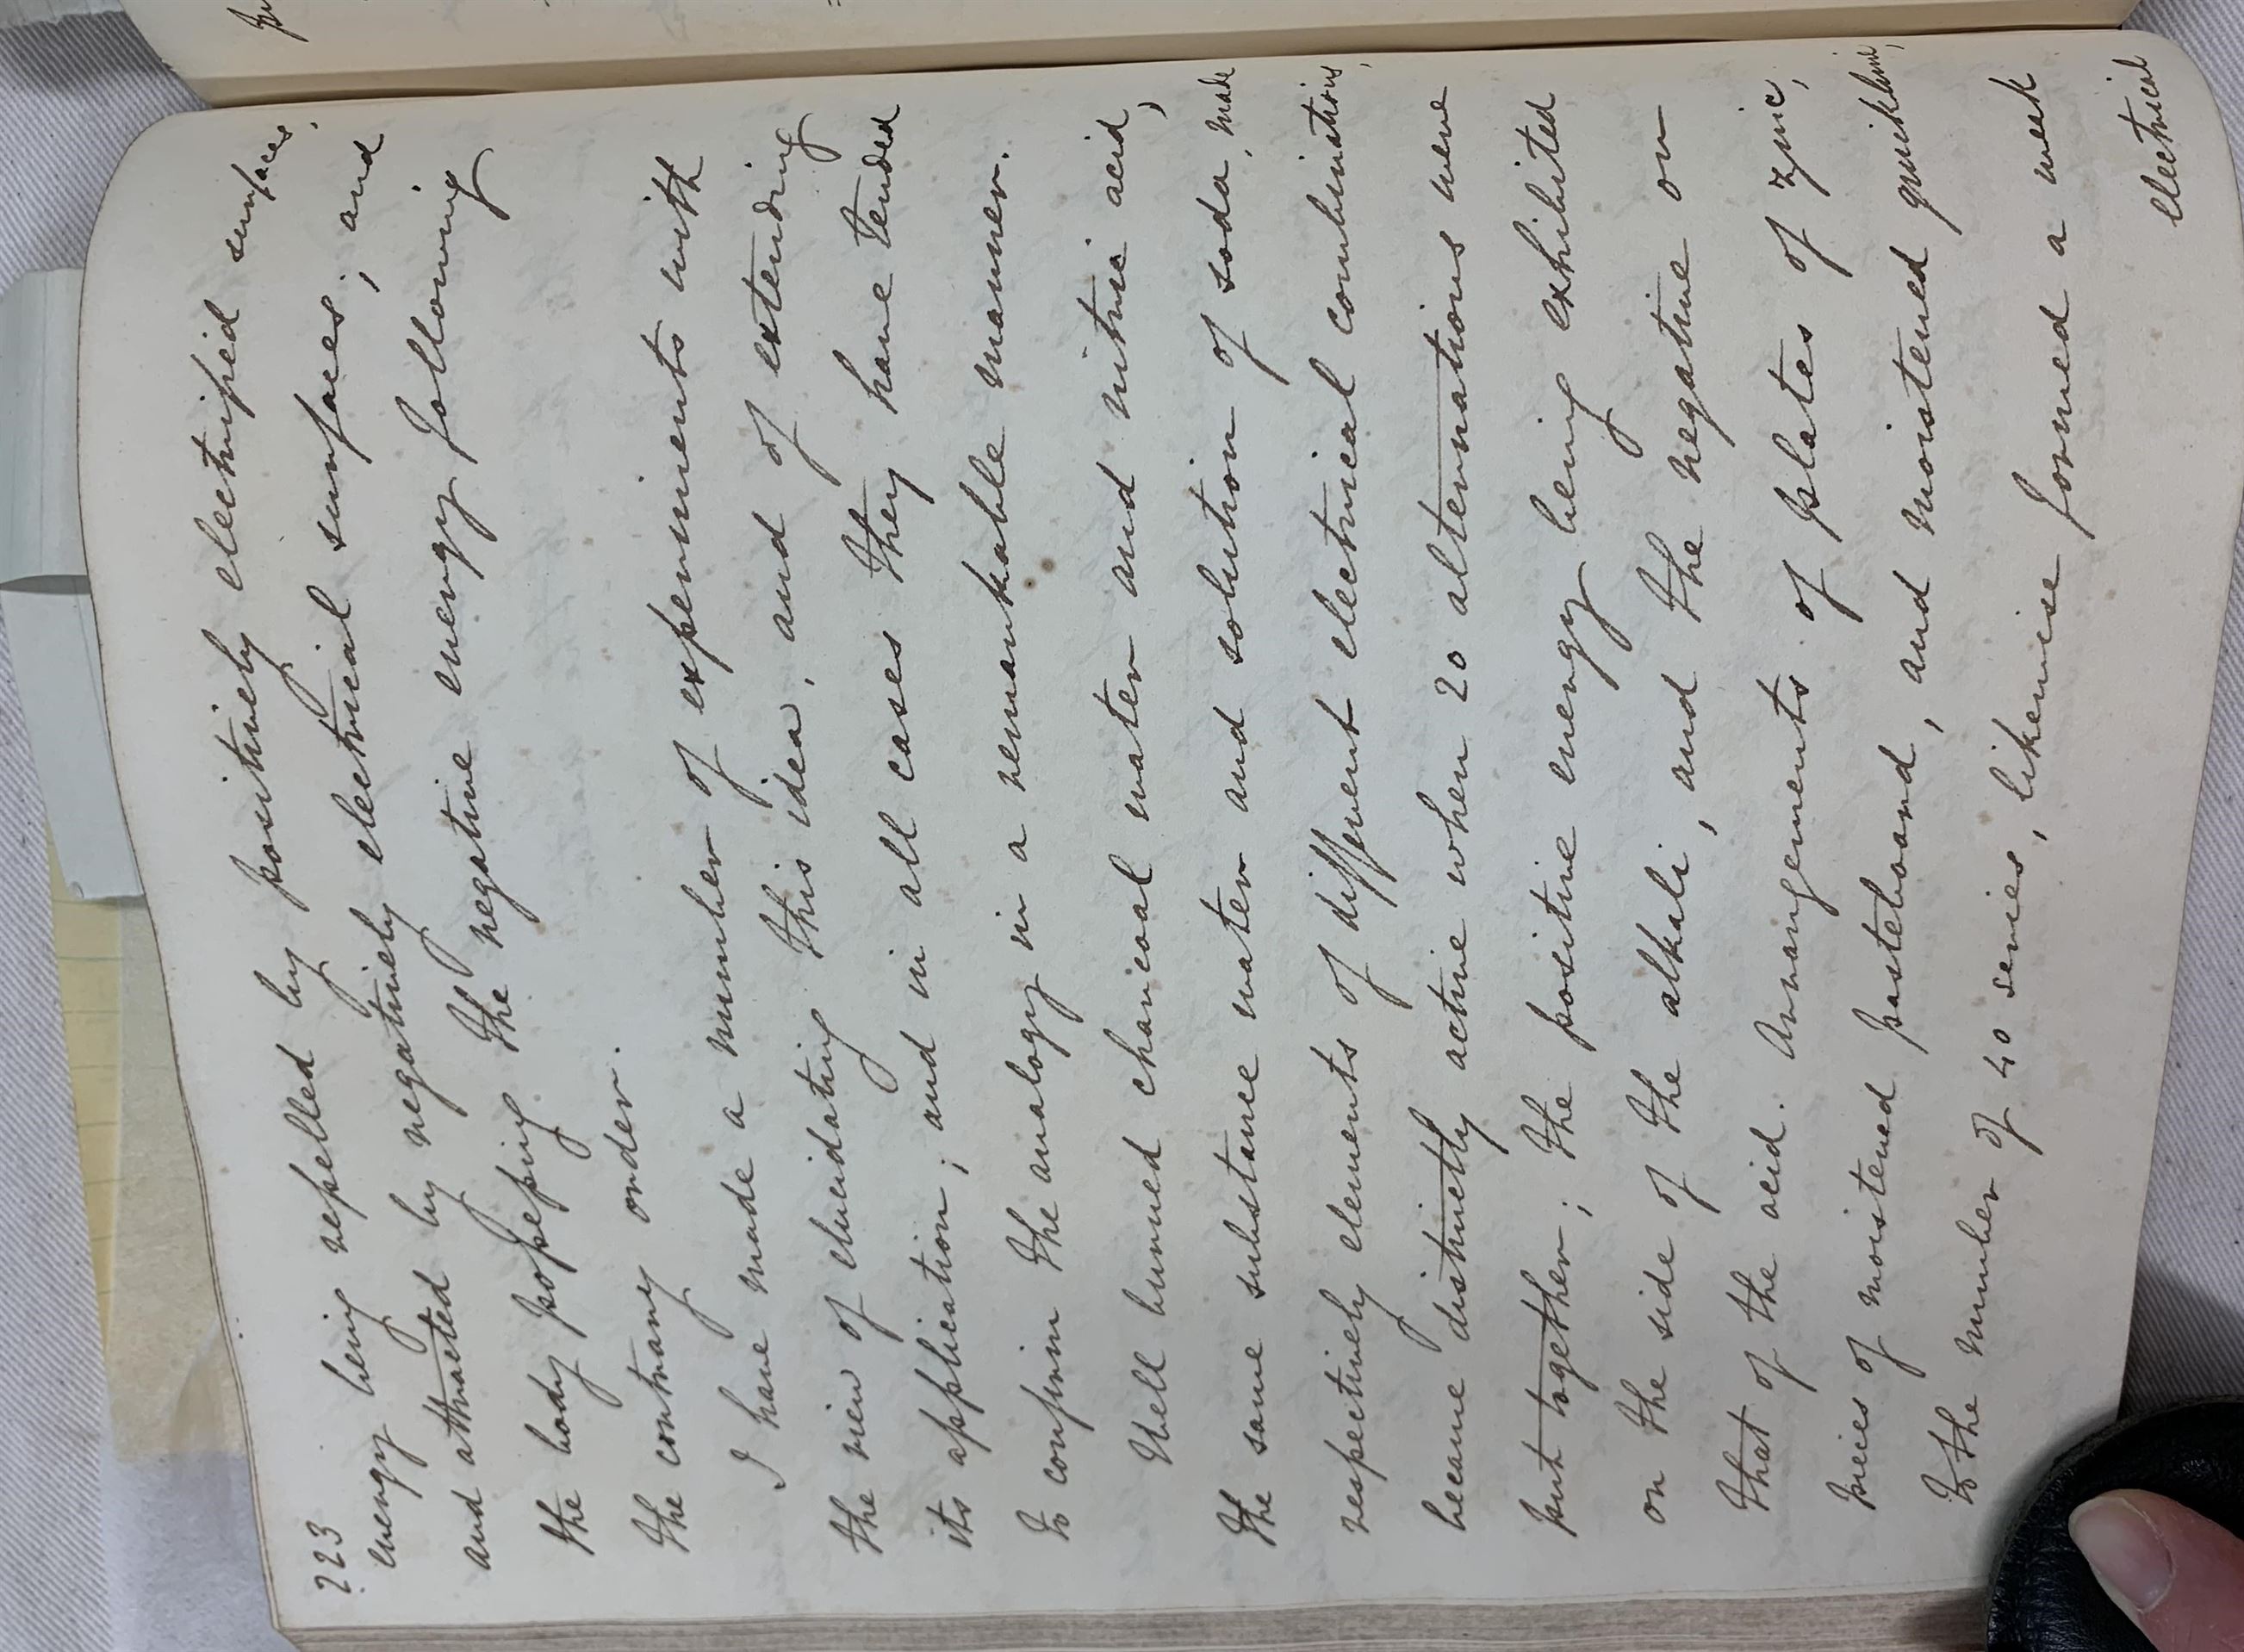 223
energy being repelled by positively electrified surfaces,
and attracted by negatively electrical surfaces; and
the body possessing the negative energy following
the contrary order.
I have made a number of experiments with
the view of elucidating this idea, and of extending
its application; and in all cases they have tended
to confirm the analogy in a remarkable manner.
Well burned charcoal water and nitric acid,
the same substance water and solution of soda, made
respectively elements of different electrical combinations,
became distinctly active when 20 alternations were
put together; the positive energy being exhibited
on the side of the alkali, and the negative on
that of the acid. Arrangements of plates of zinc,
pieces of moistened pasteboard, and moistened quicklime,
to the number of 40 series, likewise formed a weak
electrical